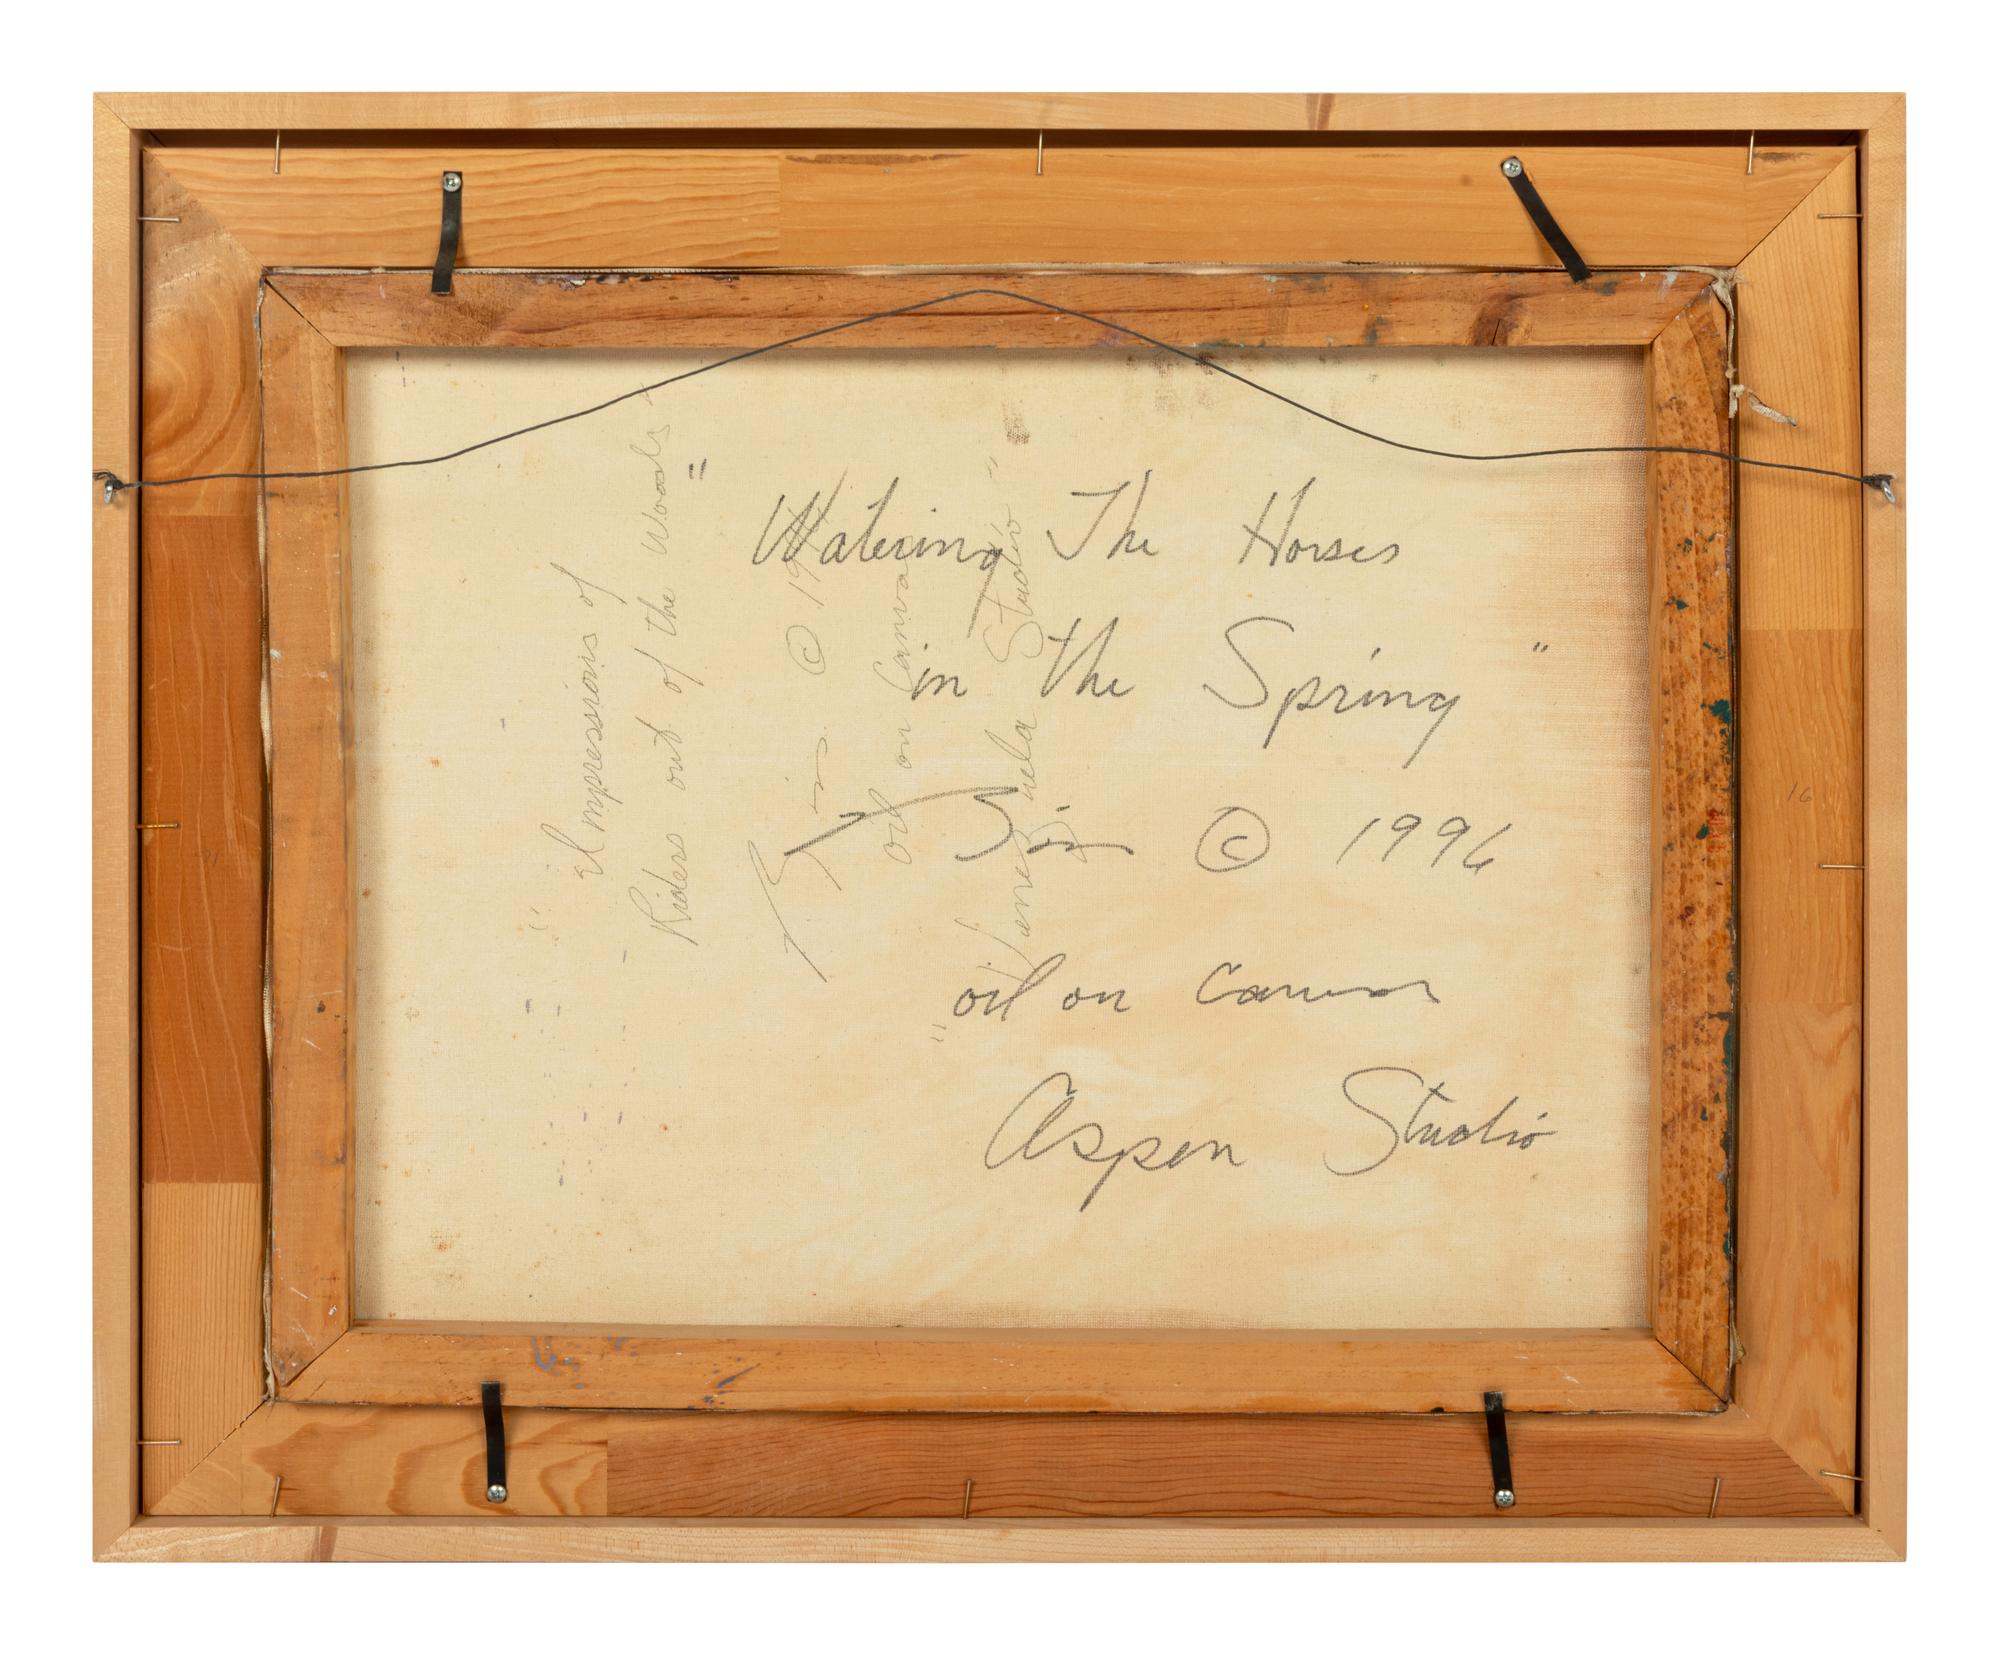 "Watering The Horses
in the Spring"
© 1996
oil on Canvas
Aspen Studio
"Impressions of
Riders out of the Woods"
© 19
oil on Canvas
" Studio"
16